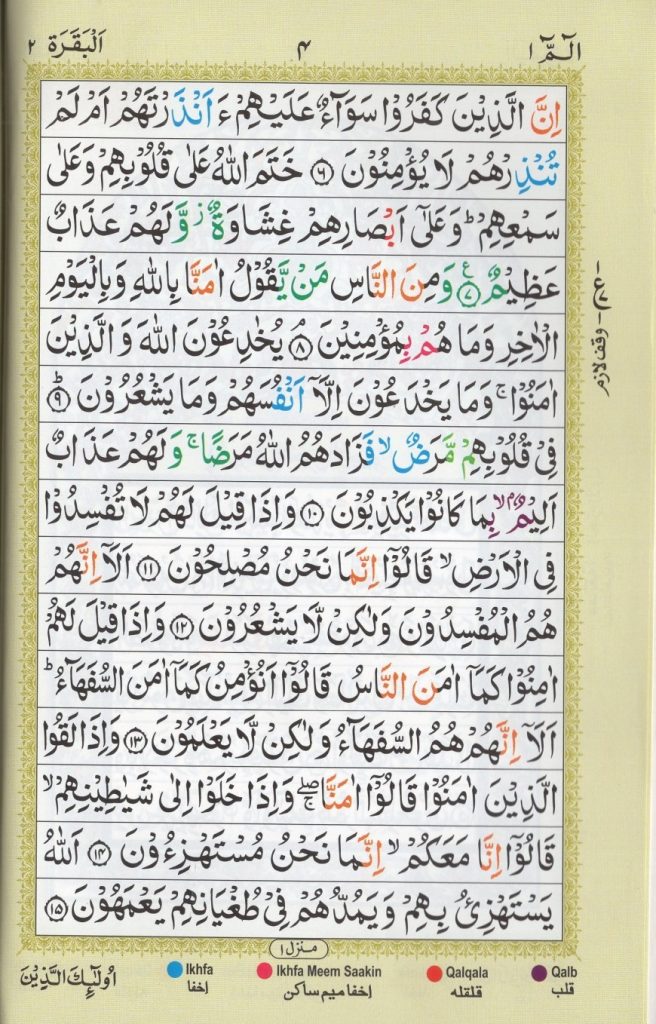 الٓمّٓ ١
٤
اَلْبَقَرَة ٢
اِنَّ الَّذِيْنَ كَفَرُوْا سَوَآءٌ عَلَيْهِمْ ءَاَنْذَرْتَهُمْ اَمْ لَمْ
تُنْذِرْهُمْ لَا يُؤْمِنُوْنَ ۝٦ خَتَمَ اللّٰهُ عَلٰى قُلُوْبِهِمْ وَعَلٰى
سَمْعِهِمْ ؕ وَعَلٰٓى اَبْصَارِهِمْ غِشَاوَةٌ ؗ وَّلَهُمْ عَذَابٌ
عَظِيْمٌ ۝٧ ع وَمِنَ النَّاسِ مَنْ يَّقُوْلُ اٰمَنَّا بِاللّٰهِ وَبِالْيَوْمِ
الْاٰخِرِ وَمَا هُمْ بِمُؤْمِنِيْنَ ۝٨ۘ يُخٰدِعُوْنَ اللّٰهَ وَالَّذِيْنَ
اٰمَنُوْا ۚ وَمَا يَخْدَعُوْنَ اِلَّآ اَنْفُسَهُمْ وَمَا يَشْعُرُوْنَ ۝٩ؕ
فِيْ قُلُوْبِهِمْ مَّرَضٌ ۙ فَزَادَهُمُ اللّٰهُ مَرَضًا ۚ وَلَهُمْ عَذَابٌ
اَلِيْمٌۢ ۙ بِمَا كَانُوْا يَكْذِبُوْنَ ۝١٠ وَاِذَا قِيْلَ لَهُمْ لَا تُفْسِدُوْا
فِى الْاَرْضِ ۙ قَالُوْٓا اِنَّمَا نَحْنُ مُصْلِحُوْنَ ۝١١ اَلَآ اِنَّهُمْ
هُمُ الْمُفْسِدُوْنَ وَلٰكِنْ لَّا يَشْعُرُوْنَ ۝١٢ وَاِذَا قِيْلَ لَهُمْ
اٰمِنُوْا كَمَآ اٰمَنَ النَّاسُ قَالُوْٓا اَنُؤْمِنُ كَمَآ اٰمَنَ السُّفَهَآءُ ؕ
اَلَآ اِنَّهُمْ هُمُ السُّفَهَآءُ وَلٰكِنْ لَّا يَعْلَمُوْنَ ۝١٣ وَاِذَا لَقُوا
الَّذِيْنَ اٰمَنُوْا قَالُوْٓا اٰمَنَّا ۖۚ وَاِذَا خَلَوْا اِلٰى شَيٰطِيْنِهِمْ ۙ
قَالُوْٓا اِنَّا مَعَكُمْ ۙ اِنَّمَا نَحْنُ مُسْتَهْزِءُوْنَ ۝١٤ اَللّٰهُ
يَسْتَهْزِئُ بِهِمْ وَيَمُدُّهُمْ فِيْ طُغْيَانِهِمْ يَعْمَهُوْنَ ۝١٥
وقف لازم
منزل ١
اُولٰٓئِكَ الَّذِيْنَ
Ikhfa
إخفا
Ikhfa Meem Saakin
إخفا ميم ساكن
Qalqala
قلقله
Qalb
قلب